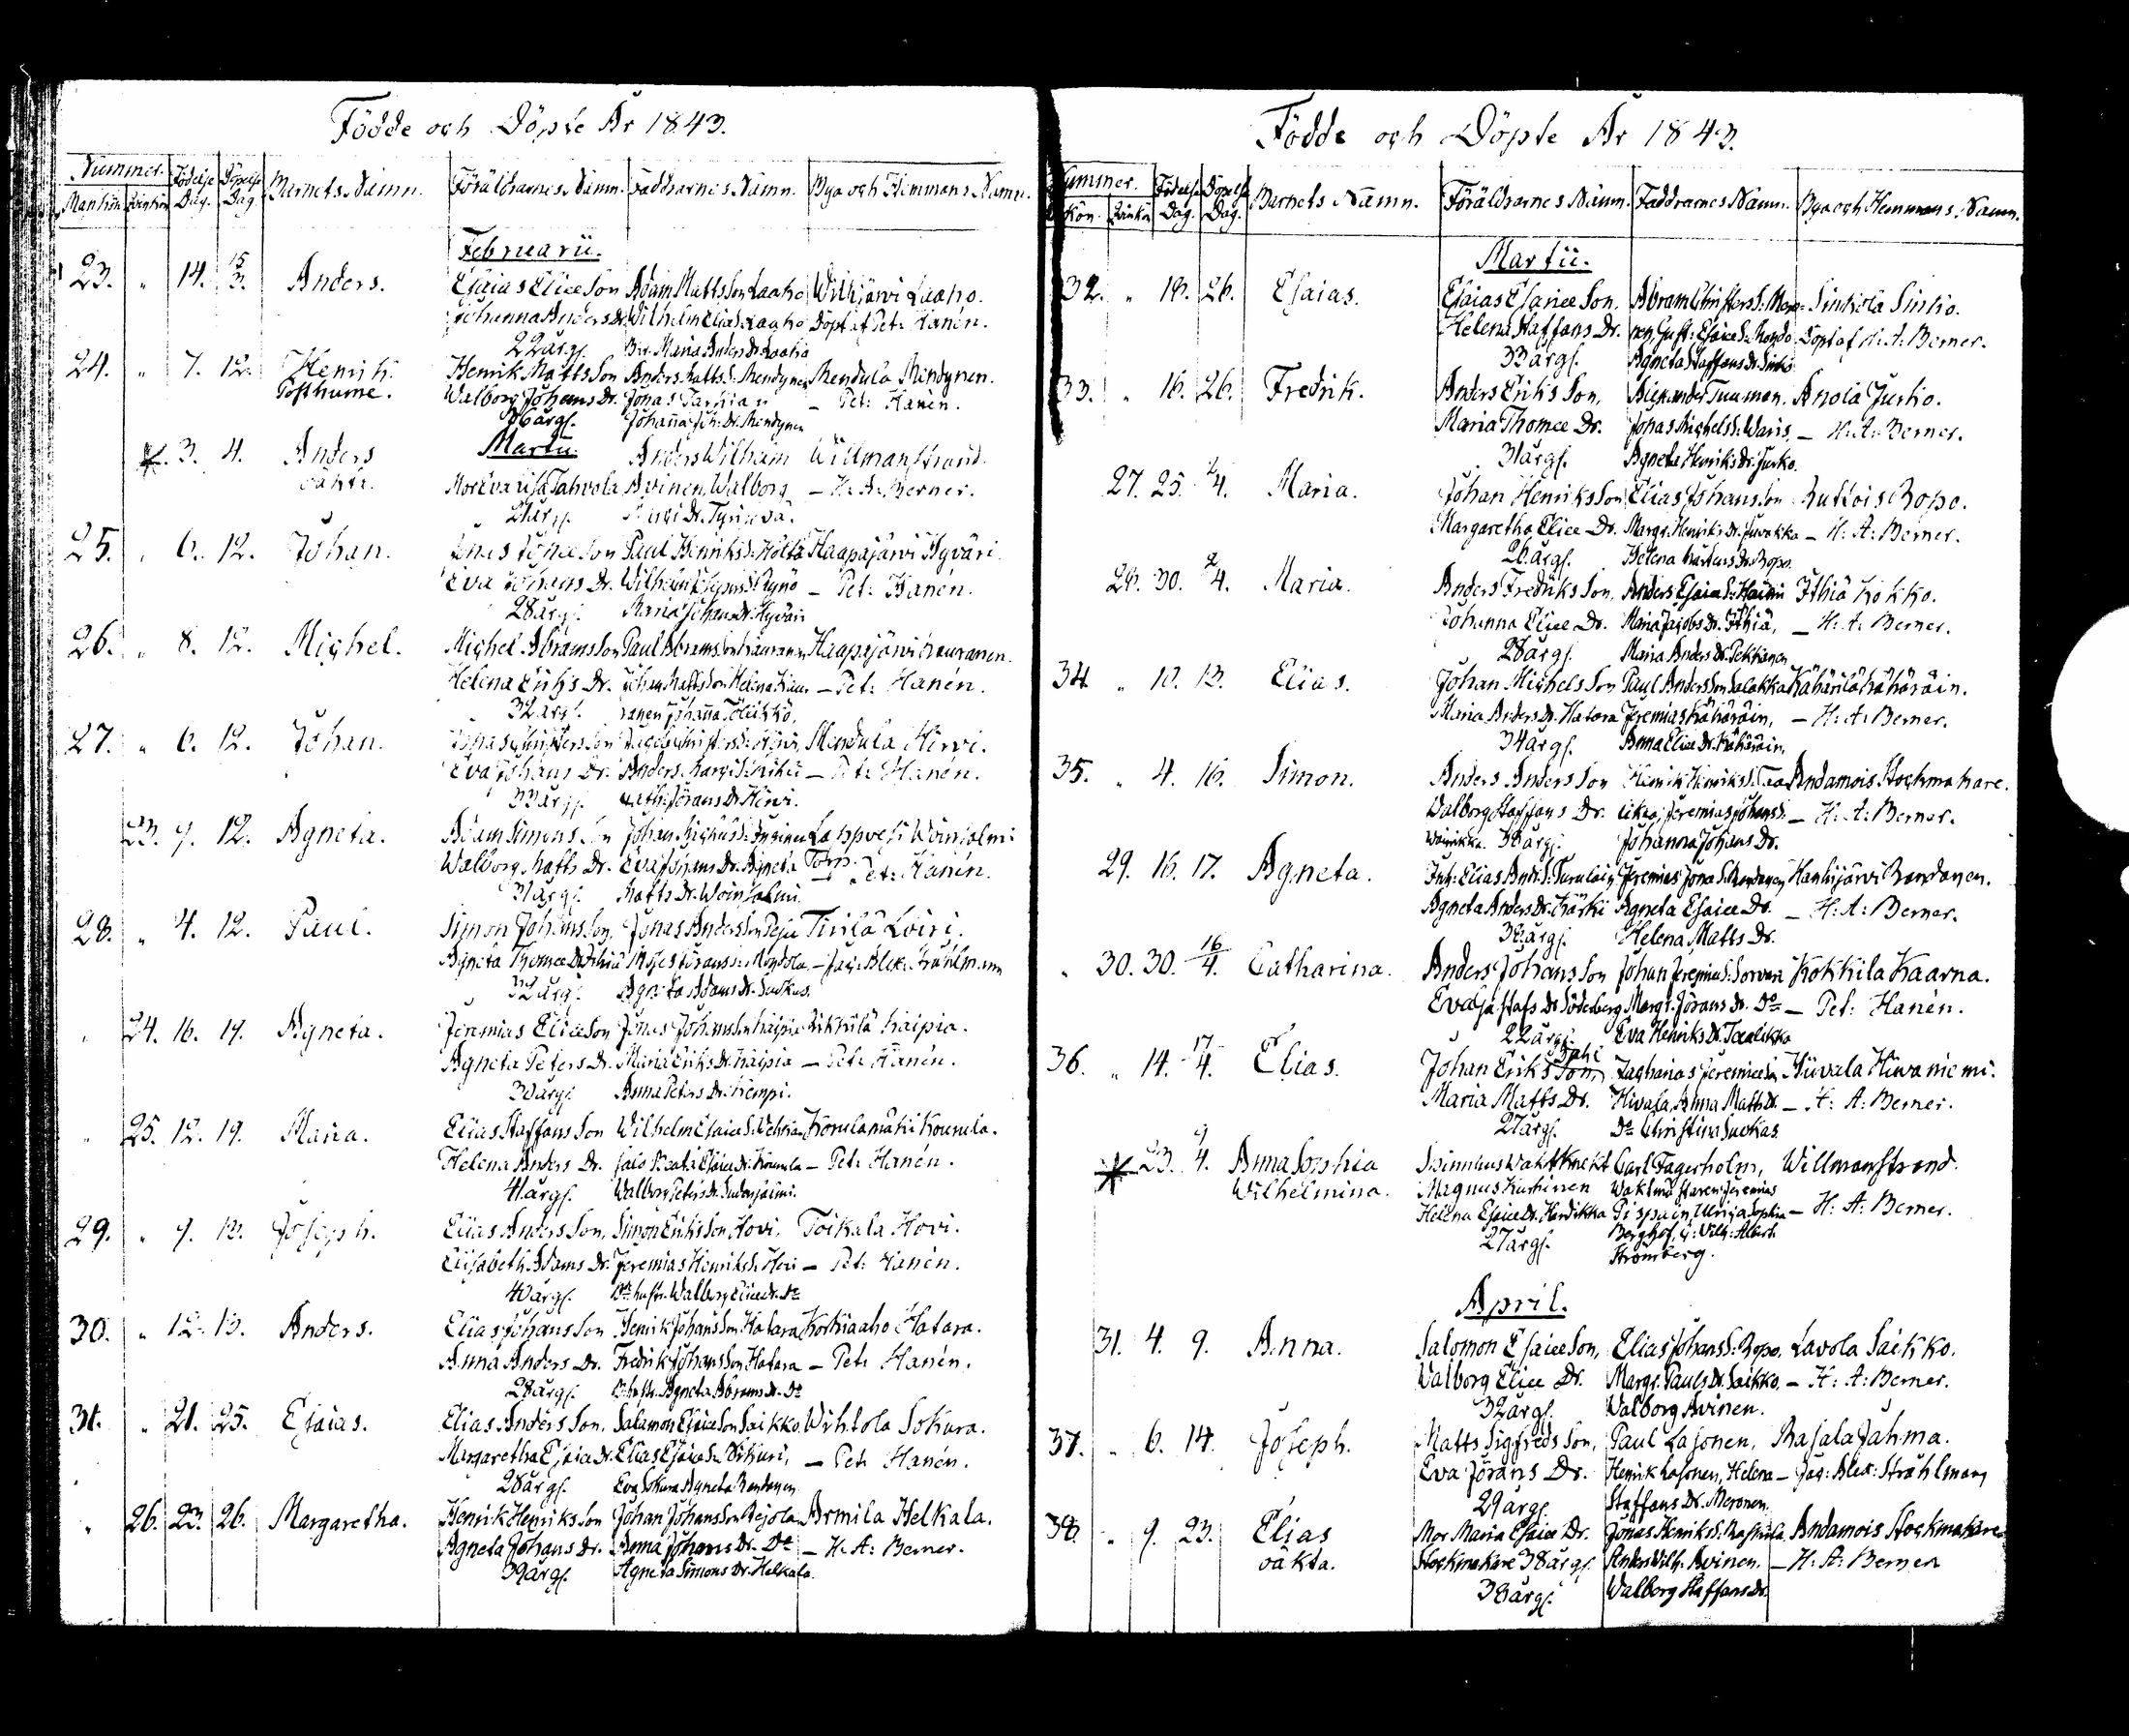 Födde och Döpte År 1843.
Nummer. Födelse Dag. Döpelse Dag Barnets Namn. Föräldrarnes Namn. Faddrarnes Namn. Bya och Hemmans Namn.
Mankön Qvinkön
Februarii.
23. " 14. 15/3. Anders. Esaias Eliæ Son Adam Matts Son Laaho Wilkjärvi Laaho.
Johanna Anders Dr. Wilhelm Eliæ S. Laaho Döpt af Pet: Hanén.
22 årg. Maria Anders Dr. Laaho
24. " 7. 12. Henrik. Henrik Matts Son Anders Matts S. Mendynen Mendula Mendynen.
Posthume. Walborg Johans Dr. Jonas Tarhian — Pet: Hanén.
36 årg. Johanna Joh: Dr. Mendynen
Martii.
3. 4. Anders Anders Wilhelm Willmanstrand.
oäkta. Mor Eva Tahvola Avinen, Walborg — H: A: Berner.
21 årg.
25. " 6. 12. Johan. Jonas Jonæ Son Paul Henriks S. Höltä Haapajärvi Hyväri
Eva Johans Dr. Wilhelm — Pet: Hanén.
28 årg. Maria Johans Dr. Hyväri
26. " 8. 12. Michel. Michel Abrams Son Paul Abrams Son Kauranen Haapajärvi Kauranen.
Helena Eriks Dr. Johan Matts Son Helena Kau — Pet: Hanén.
32 årg. ranen Johanna Tölikkö.
27. " 6. 12. Johan. Jonas Christers Son Hirvi, Mendula Hirvi.
Eva Johans Dr. Anders — Pet: Hanén.
33 årg. Cath: Jörans Dr Hirvi.
23. 9. 12. Agneta. Adam Simons Son Johan Michels S. Lappvesi Woinsalmi
Walborg Matts Dr. Eva Johans Dr. Agneta Torp. — Pet: Hanén.
31 årg. Matts Dr. Woinsalmi.
28. " 4. 12. Paul. Simon Johans Son, Jonas Anders Son Tirilä Loiri.
Agneta Thomæ Dr. Moses Görans S. Mondola — Jac: Alex: Stråhlmann
32 årg. Agneta Adams Dr. Suokas.
24. 16. 19. Agneta. Jeremias Eliæ Son Jonas Johans Son Kaipia Kaipia.
Agneta Peters Dr. Maria Eriks Dr. Kaipia — Pet: Hanén.
30 årg. Anna Peters Dr. Kiempi.
25. 12. 19. Maria. Elias Staffans Son Wilhelm Esaiæ S. Kourulamäki Kourula.
Helena Anders Dr. Beata Esaiæ Dr. Kourula — Pet: Hanén.
41 årg. Walborg Peters Dr.
29. " 9. 13. Joseph. Elias Anders Son, Simon Eriks Son Hovi, Toikala Hovi.
Elisabeth Adams Dr. Jeremias Henriks S. Hovi — Pet: Hanén.
40 årg. Walborg Eliæ Dr. Do
30. " 12. 13. Anders. Elias Johans Son Henrik Johans Son Hatara Korkiaaho Hatara.
Anna Anders Dr. Fredrik Johans Son Hatara — Pet: Hanén.
28 årg. Agneta Abrams Dr. Do
31. " 21. 25. Esaias. Elias Anders Son, Salamon Esaiæ Son Saikko Wihtola Sokura.
Margaretha Esaiæ Dr. Elias Esaiæ S. — Pet: Hanén.
28 årg. Eva Sokura Agneta Randanen
" 26. 23. 26. Margaretha. Henrik Henriks Son Johan Johans Son Rejola Armila Helkala.
Agneta Johans Dr. Anna Johans Dr. Do — H: A: Berner.
39 årg. Agneta Simons Dr. Helkala.
Födde och Döpte År 1843.
Nummer. Födelse Dag. Döpelse Dag. Barnets Namn. Föräldrarnes Namn. Faddrarnes Namn. Bya och Hemmans Namn.
kön. Qvinkön
Martii.
32. " 18. 26. Esaias. Esaias Esaiæ Son. Abram Christers S: Sinkola Sinko.
Helena Staffans Dr. Gust: Esaiæ S: Döpt af H: A: Berner.
33 årg. Agneta Staffans Dr. Sinko
33. " 16. 26. Fredrik. Anders Eriks Son, Alexander Tuuman. Anola Jurko.
Maria Thomæ Dr. Jonas Michels S: Waris, — H: A: Berner.
31 årg. Agneta Henriks Dr. Jurko.
27. 25. 2/4. Maria. Johan Henriks Son Elias Johans Son Ruttois Ropo.
Margaretha Eliæ Dr. Margr: Henriks Dr. Juvakka — H: A: Berner.
26 årg. Helena Dr. Ropo.
28. 30. 2/4. Maria. Anders Fredriks Son, Anders Esaiæ S: Ithiä Kokko.
Johanna Eliæ Dr. Maria Jacobs Dr. Ithiä, — H: A: Berner.
28 årg. Maria Anders Dr. Pekkanen
34. " 10. 13. Elias. Johan Michels Son Paul Anders Son Salakka Kähärilä Kähäräin.
Maria Anders Dr. Hatara Jeremias Kähäräin, — H: A: Berner.
34 årg. Anna Eliæ Dr. Kähäräin.
35. " 4. 16. Simon. Anders Anders Son Henrik Henriks S: Andamois Stockmakare.
Walborg Staffans Dr. Jeremias Johans S. — H: A: Berner.
38 årg. Johanna Johans Dr.
29. 16. 17. Agneta. Inh: Elias And: S: Jeremias Jonæ S. Randanen Hanhijärvi Randanen.
Agneta Anders Dr. Kärki Agneta Esaiæ Dr. — H: A: Berner.
38 årg. Helena Matts Dr.
" 30. 30. 16/4. Catharina. Anders Johans Son Johan Jeremiæ S: Sorvari Kokkila Kaarna.
Eva Gustafs Dr. Söderberg Margr. Jörans Dr. Do — Pet: Hanén.
22 årg. Eva Henriks Dr. Toelikko
36. " 14. 17/4. Elias. Johan Eriks Son, Zacharias Jeremiæ S. Hiivala Hiivaniemi.
Maria Matts Dr. Hivala, Anna Matts Dr. — H: A: Berner.
27 årg. Do Christina Suokas.
23. 9/4. Anna Sophia Spinnhus Waktknekt Carl Fagerholm, Willmanstrand.
Wilhelmina. Magnus Kurhinen Waktmästaren Jeremias
Helena Esaiæ Dr. Hardikka Pispain, Ulrica Sophia — H: A: Berner.
27 årg. Berghof, Wilh: Albert.
Stromberg.
April.
31. 4. 9. Anna. Salomon Esaiæ Son, Elias Johans S: Ropo. Lavola Saikko.
Walborg Eliæ Dr. Margr. Pauls Dr. Saikko, — H: A: Berner.
32 årg. Walborg Avinen.
37. " 6. 14. Joseph. Matts Sigfreds Son, Paul Lasonen, Rasala Jahma.
Eva Jörans Dr. Henrik Lasonen, Helena — Jac: Alex: Stråhlmann
29 årg. Staffans Dr. Meronen.
38. " 9. 23. Elias Mor Maria Esaiæ Dr. Jonas Henriks S. Andamois Stockmakare
oäkta. Stockmakare 38 årg. Anders Wilh: Avinen. — H: A: Berner
38 årg. Walborg Staffans Dr.